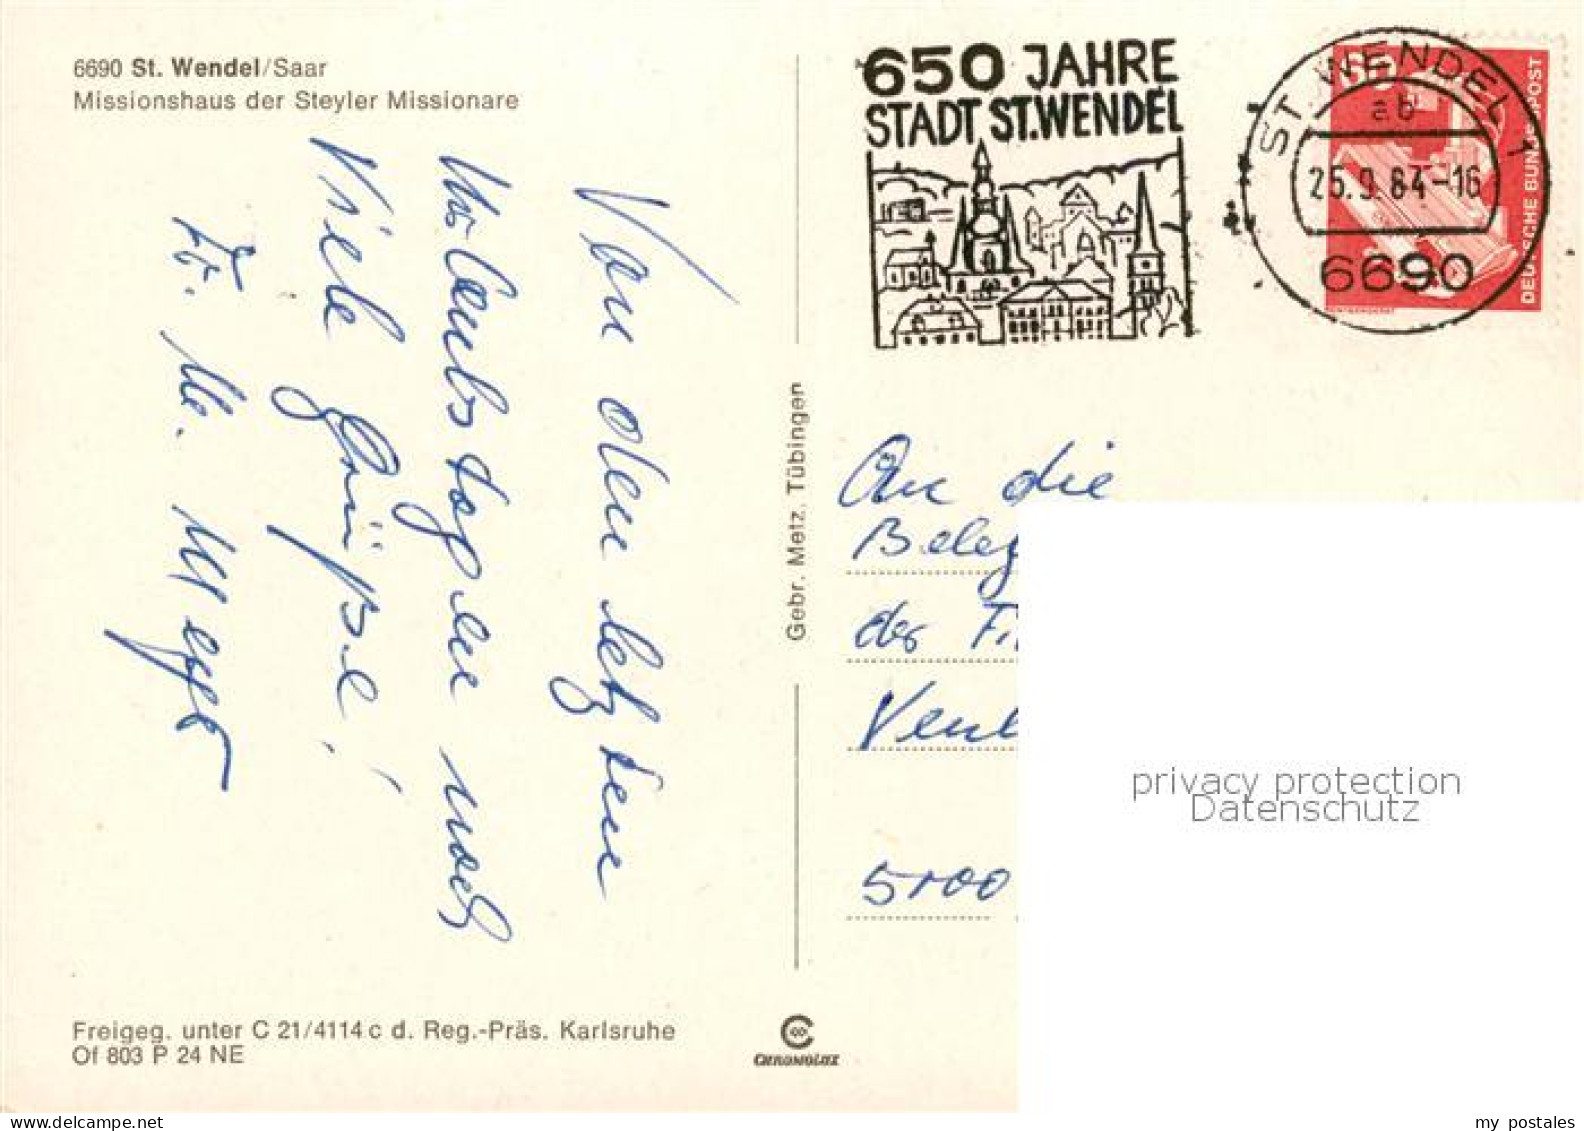 6690 St. Wendel/Saar
Missionshaus der Steyler Missionare
Von den letzten
Urlaubstagen noch
Viele Grüße!
Fr. M.
650 JAHRE
STADT ST.WENDEL
ST. WENDEL 1
ab
25.9.84-16
6690
DEUTSCHE BUNDESPOST
Gebr. Metz, Tübingen
An die
Beleg
der Fi
Vent
5100
privacy protection
Datenschutz
Freigeg. unter C 21/4114 c d. Reg.-Präs. Karlsruhe
Of 803 P 24 NE
CHROMOLUX
my postales